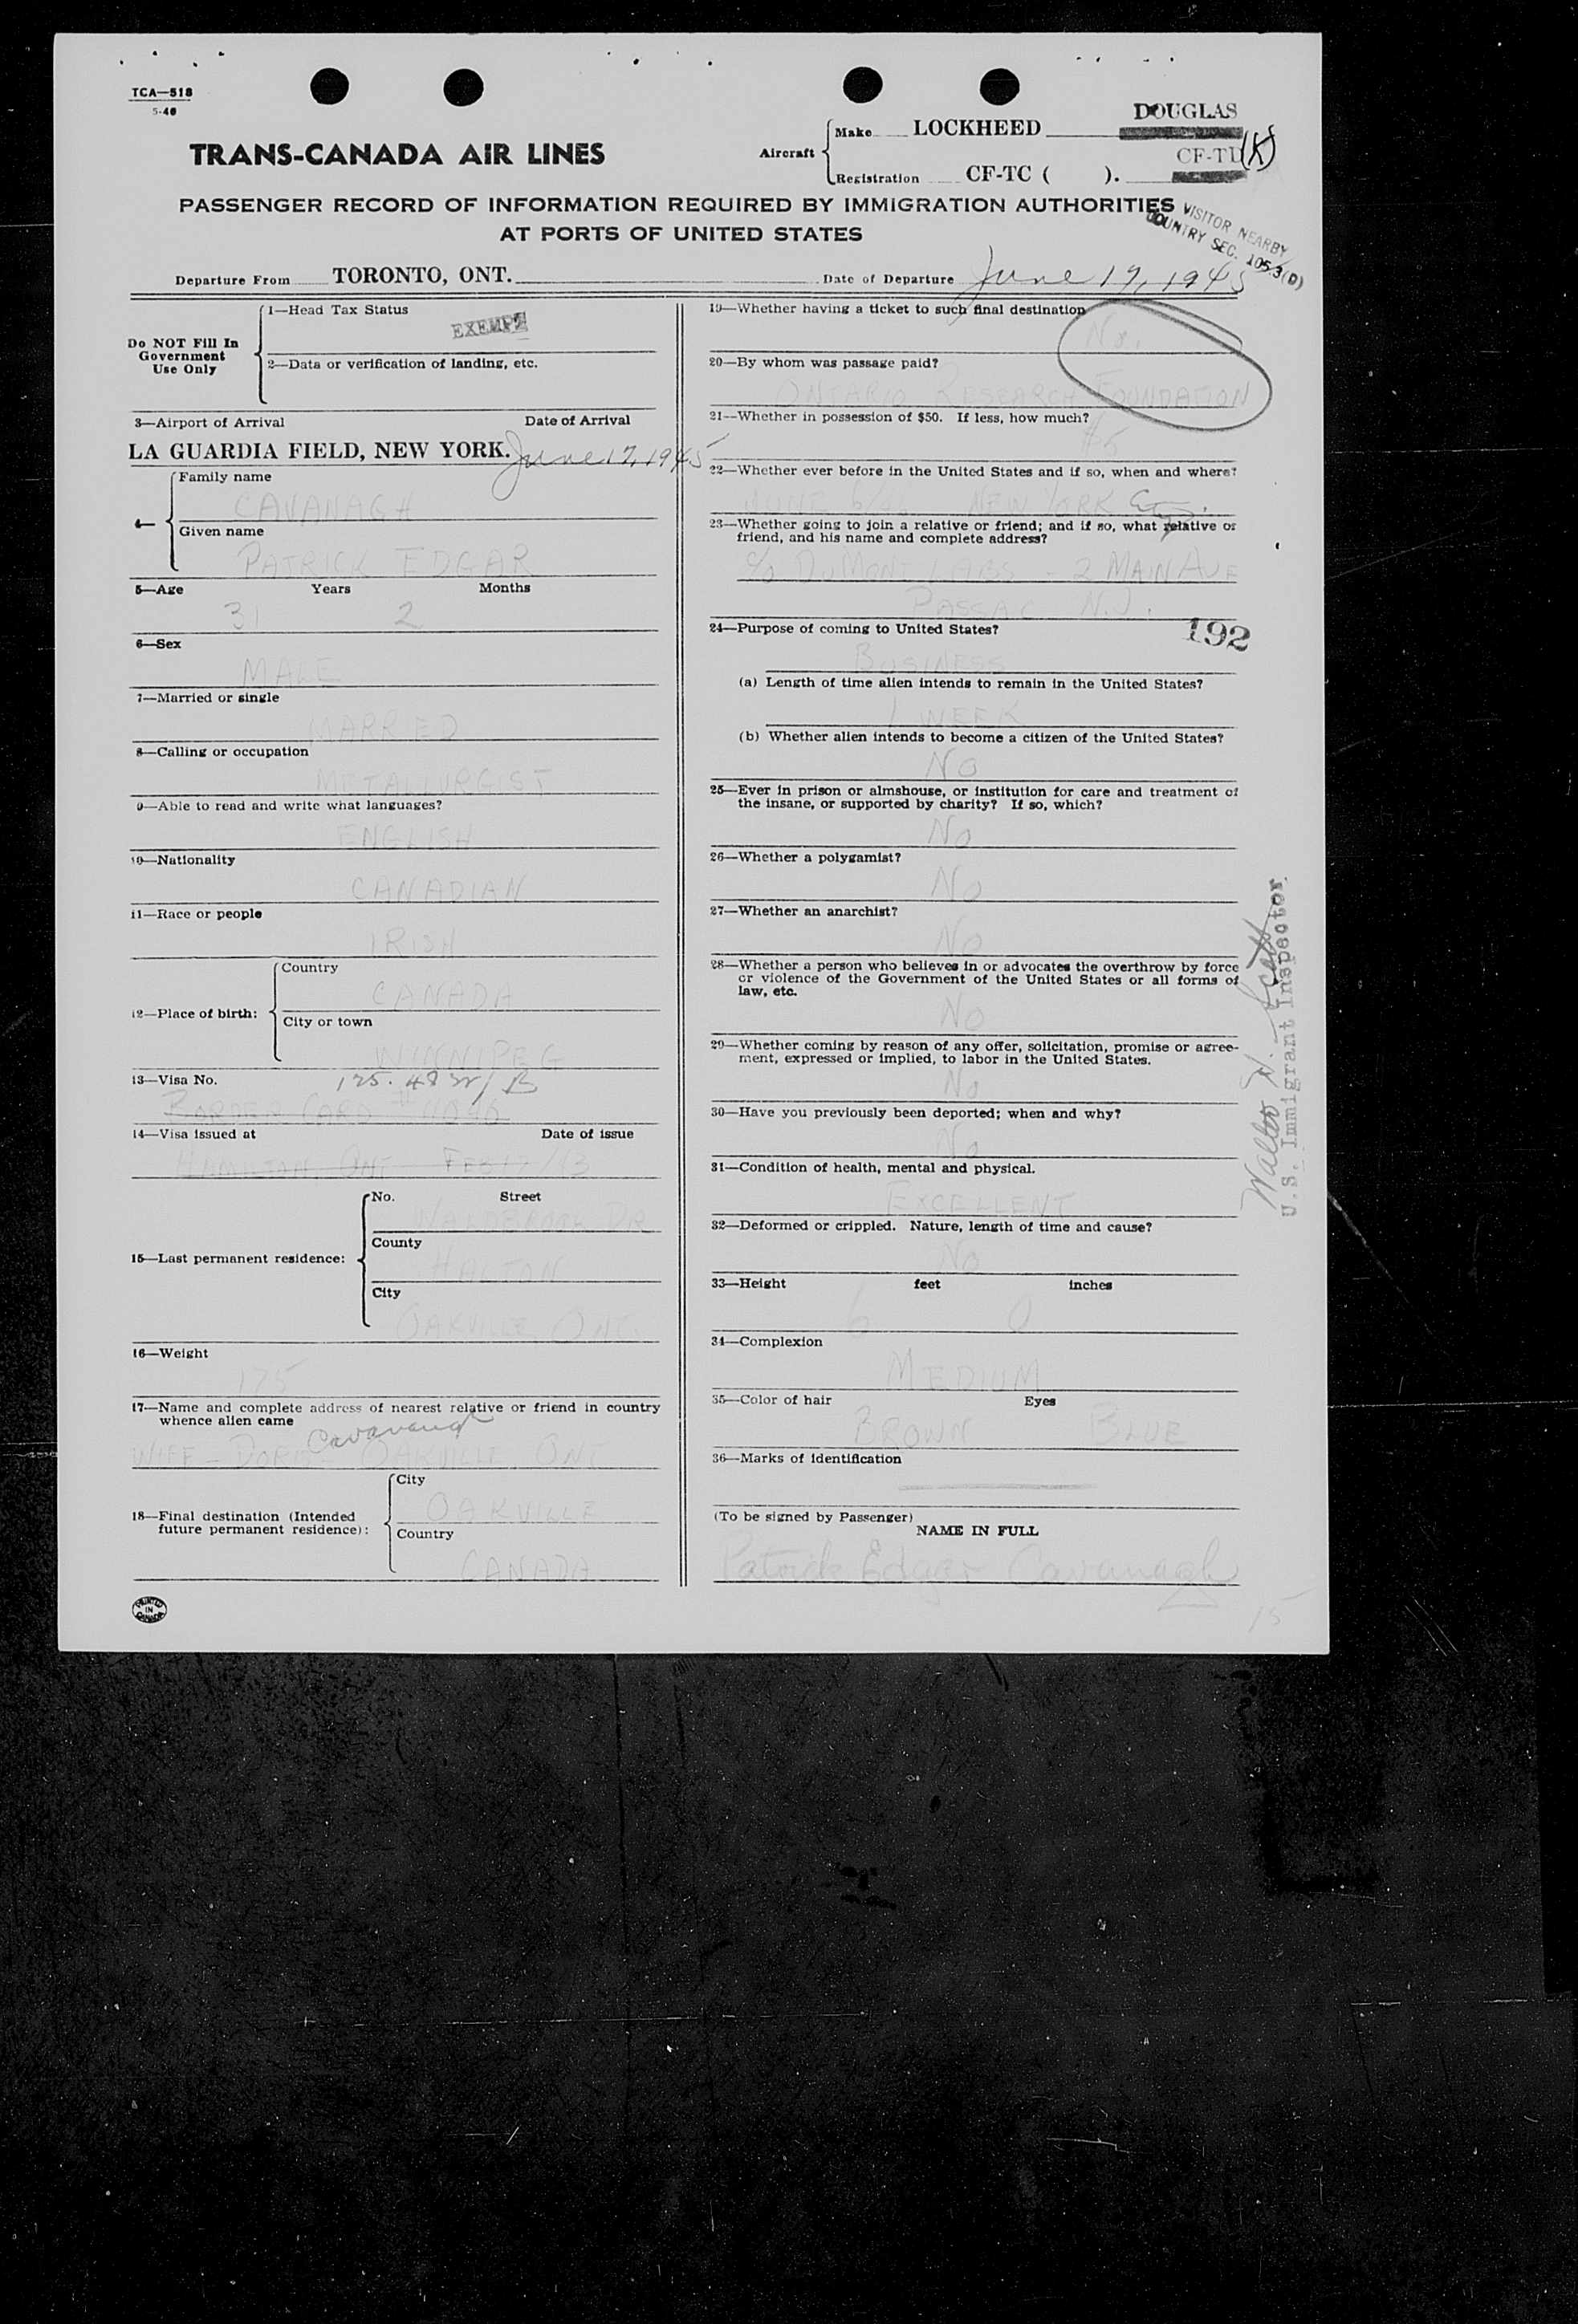 TCA—518
5-40
TRANS-CANADA AIR LINES
Aircraft
Make LOCKHEED
DOUGLAS
Registration CF-TC ( ).
CF-TD(K)
PASSENGER RECORD OF INFORMATION REQUIRED BY IMMIGRATION AUTHORITIES
AT PORTS OF UNITED STATES
VISITOR NEARBY
COUNTRY SEC. 105.3(D)
Departure From TORONTO, ONT. Date of Departure June 17, 1945
Do NOT Fill In
Government
Use Only
1—Head Tax Status
EXEMPT
2—Data or verification of landing, etc.
3—Airport of Arrival Date of Arrival
LA GUARDIA FIELD, NEW YORK. June 17, 1945
4—
Family name
CAVANAGH
Given name
PATRICK EDGAR
5—Age Years Months
31 2
6—Sex
MALE
7—Married or single
MARRIED
8—Calling or occupation
METALLURGIST
9—Able to read and write what languages?
ENGLISH
10—Nationality
CANADIAN
11—Race or people
IRISH
12—Place of birth:
Country
CANADA
City or town
WINNIPEG
13—Visa No.
BORDER CARD
14—Visa issued at Date of issue
HAMILTON, ONT FEB 17/43
15—Last permanent residence:
No. Street
DR
County
HALTON
City
OAKVILLE ONT.
16—Weight
175
17—Name and complete address of nearest relative or friend in country
whence alien came
Cavanaugh
WIFE - OAKVILLE, ONT
18—Final destination (Intended
future permanent residence):
City
OAKVILLE
Country
CANADA
PRINTED
IN
CANADA
19—Whether having a ticket to such final destination
No.
20—By whom was passage paid?
ONTARIO RESEARCH FOUNDATION
21—Whether in possession of $50. If less, how much?
22—Whether ever before in the United States and if so, when and where?
JUNE NEW YORK City.
23—Whether going to join a relative or friend; and if so, what relative or
friend, and his name and complete address?
c/o DUMONT LABS - 2 MAIN AVE
PASSAC N.J.
24—Purpose of coming to United States?
192
BUSINESS
(a) Length of time alien intends to remain in the United States?
1 WEEK
(b) Whether alien intends to become a citizen of the United States?
NO
25—Ever in prison or almshouse, or institution for care and treatment of
the insane, or supported by charity? If so, which?
NO
26—Whether a polygamist?
NO
27—Whether an anarchist?
NO
28—Whether a person who believes in or advocates the overthrow by force
or violence of the Government of the United States or all forms of
law, etc.
NO
29—Whether coming by reason of any offer, solicitation, promise or agree-
ment, expressed or implied, to labor in the United States.
NO
30—Have you previously been deported; when and why?
NO
31—Condition of health, mental and physical.
EXCELLENT
32—Deformed or crippled. Nature, length of time and cause?
NO
33—Height feet inches
6 0
34—Complexion
MEDIUM
35—Color of hair Eyes
BROWN BLUE
36—Marks of identification
(To be signed by Passenger)
NAME IN FULL
Patrick Edgar Cavanagh
15
Walter N. Scott
U.S. Immigrant Inspector.